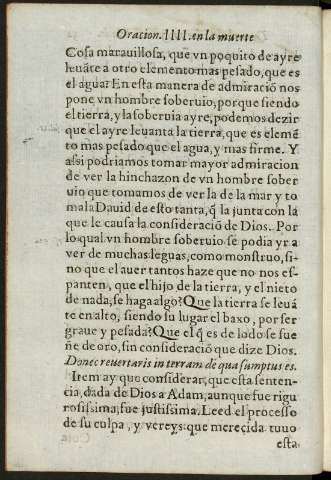 Oracion. IIII. en la muerte
Cosa marauillosa, que vn poquito de ayre
leuãte a otro elemento mas pesado, que es
el agua? En esta manera de admiraciõ nos
pone vn hombre soberuio, porque siendo
el tierra, y la soberuia ayre, podemos dezir
que el ayre leuanta la tierra, que es elemẽ
to mas pesado que el agua, y mas firme. Y
assi podriamos tomar mayor admiracion
de ver la hinchazon de vn hombre sober
uio que tomamos de ver la de la mar y to
mala Dauid de esto tanta, q̃ la junta con la
que le causa la consideraciõ de Dios. Por
lo qual vn hombre soberuio se podia yr a
ver de muchas leguas, como monstruo, si-
no que el auer tantos haze que no nos es-
panten, que el hijo de la tierra, y el nieto
de nada, se haga algo? Que la tierra se leuã
te en alto, siendo su lugar el baxo, por ser
graue y pesada? Que el q̃ es de lodo se sue
ñe de oro, sin consideraciõ que dize Dios.
Donec reuertaris in terram de qua sumptus es.
Item ay que considerar, que esta senten-
cia, dada de Dios a Adam, aunque fue rigu
rosissima, fue justissima. Leed el processo
de su culpa, y vereys que merecida tuuo
esta